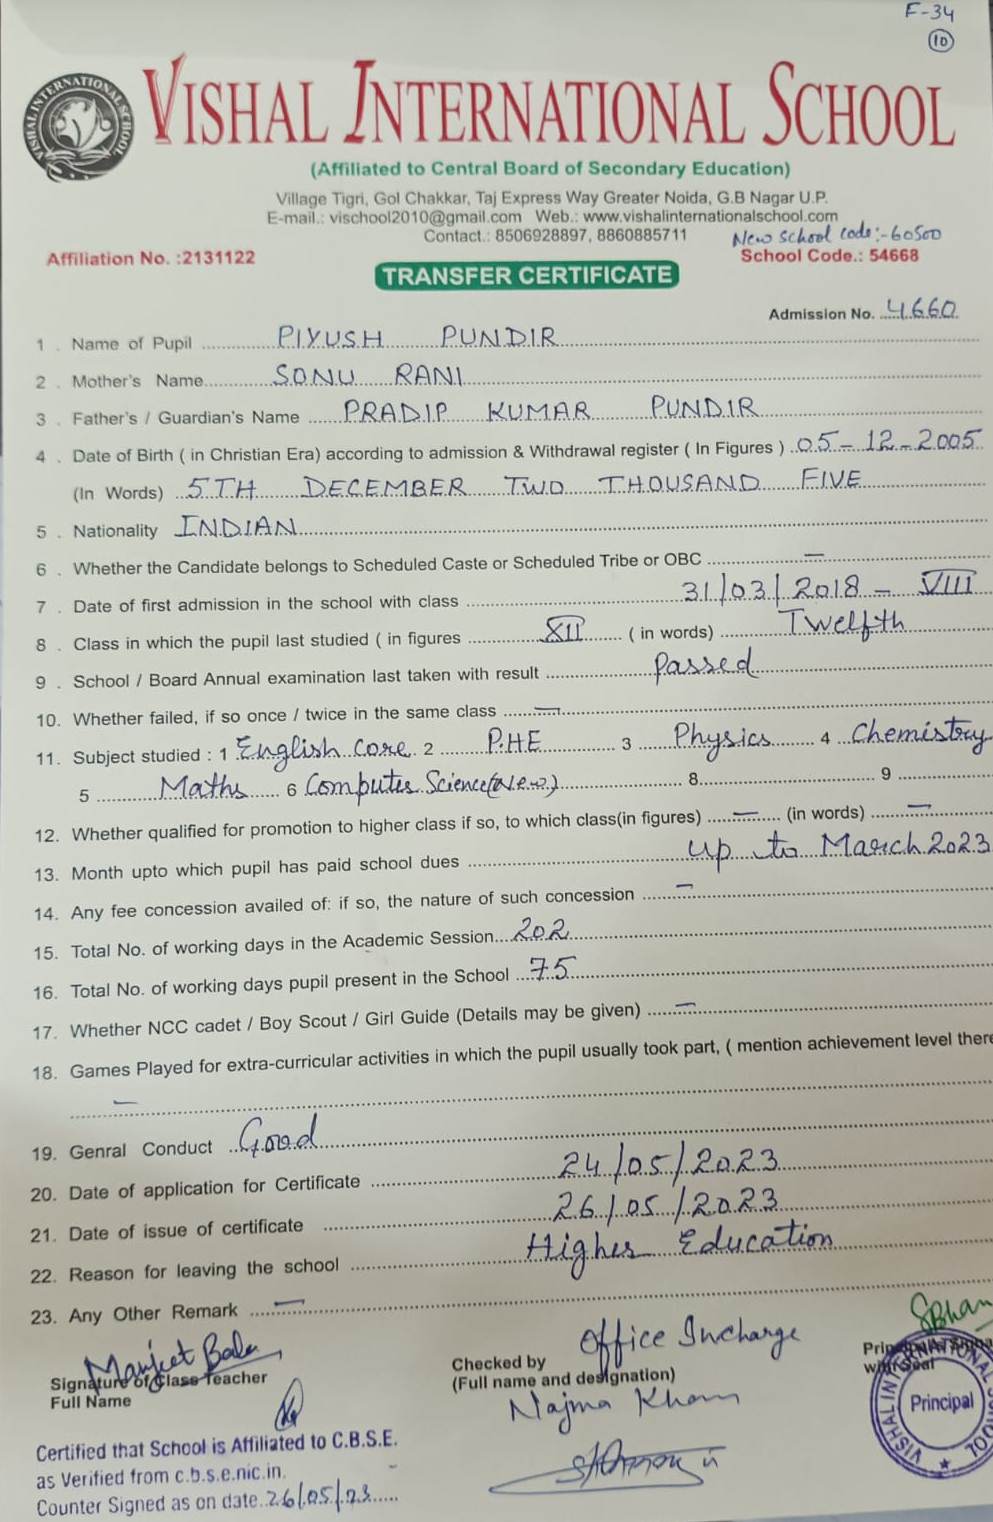 F-34
10
VISHAL INTERNATIONAL SCHOOL
VISHAL INTERNATIONAL SCHOOL
(Affiliated to Central Board of Secondary Education)
Village Tigri, Gol Chakkar, Taj Express Way Greater Noida, G.B Nagar U.P.
E-mail.: vischool2010@gmail.com Web.: www.vishalinternationalschool.com
Contact.: 8506928897, 8860885711
New School Code:-60500
Affiliation No. :2131122
School Code.: 54668
TRANSFER CERTIFICATE
Admission No. 4660
1 . Name of Pupil PIYUSH PUNDIR
2 . Mother's Name SONU RANI
3 . Father's / Guardian's Name PRADIP KUMAR PUNDIR
4 . Date of Birth ( in Christian Era) according to admission & Withdrawal register ( In Figures ) 05-12-2005
(In Words) 5TH DECEMBER TWO THOUSAND FIVE
5 . Nationality INDIAN
6 . Whether the Candidate belongs to Scheduled Caste or Scheduled Tribe or OBC —
7 . Date of first admission in the school with class 31/03/2018 - VIII
8 . Class in which the pupil last studied ( in figures XII ( in words) Twelfth
9 . School / Board Annual examination last taken with result Passed
10. Whether failed, if so once / twice in the same class —
11. Subject studied : 1 English Core 2 P.HE 3 Physics 4 Chemistry
5 Maths 6 Computer Science(New) 8 9
12. Whether qualified for promotion to higher class if so, to which class(in figures) — (in words) —
13. Month upto which pupil has paid school dues up to March 2023
14. Any fee concession availed of: if so, the nature of such concession —
15. Total No. of working days in the Academic Session 202
16. Total No. of working days pupil present in the School 75
17. Whether NCC cadet / Boy Scout / Girl Guide (Details may be given) —
18. Games Played for extra-curricular activities in which the pupil usually took part, ( mention achievement level there
—
19. Genral Conduct Good
20. Date of application for Certificate 24/05/2023
21. Date of issue of certificate 26/05/2023
22. Reason for leaving the school Higher Education
23. Any Other Remark —
Manjeet Bala
Signature of Class Teacher
Full Name
Office Incharge
Checked by
(Full name and designation)
Najma Khan
with Seal
VISHAL INTERNATIONAL SCHOOL
Principal
Certified that School is Affiliated to C.B.S.E.
as Verified from c.b.s.e.nic.in.
Counter Signed as on date 26/05/23